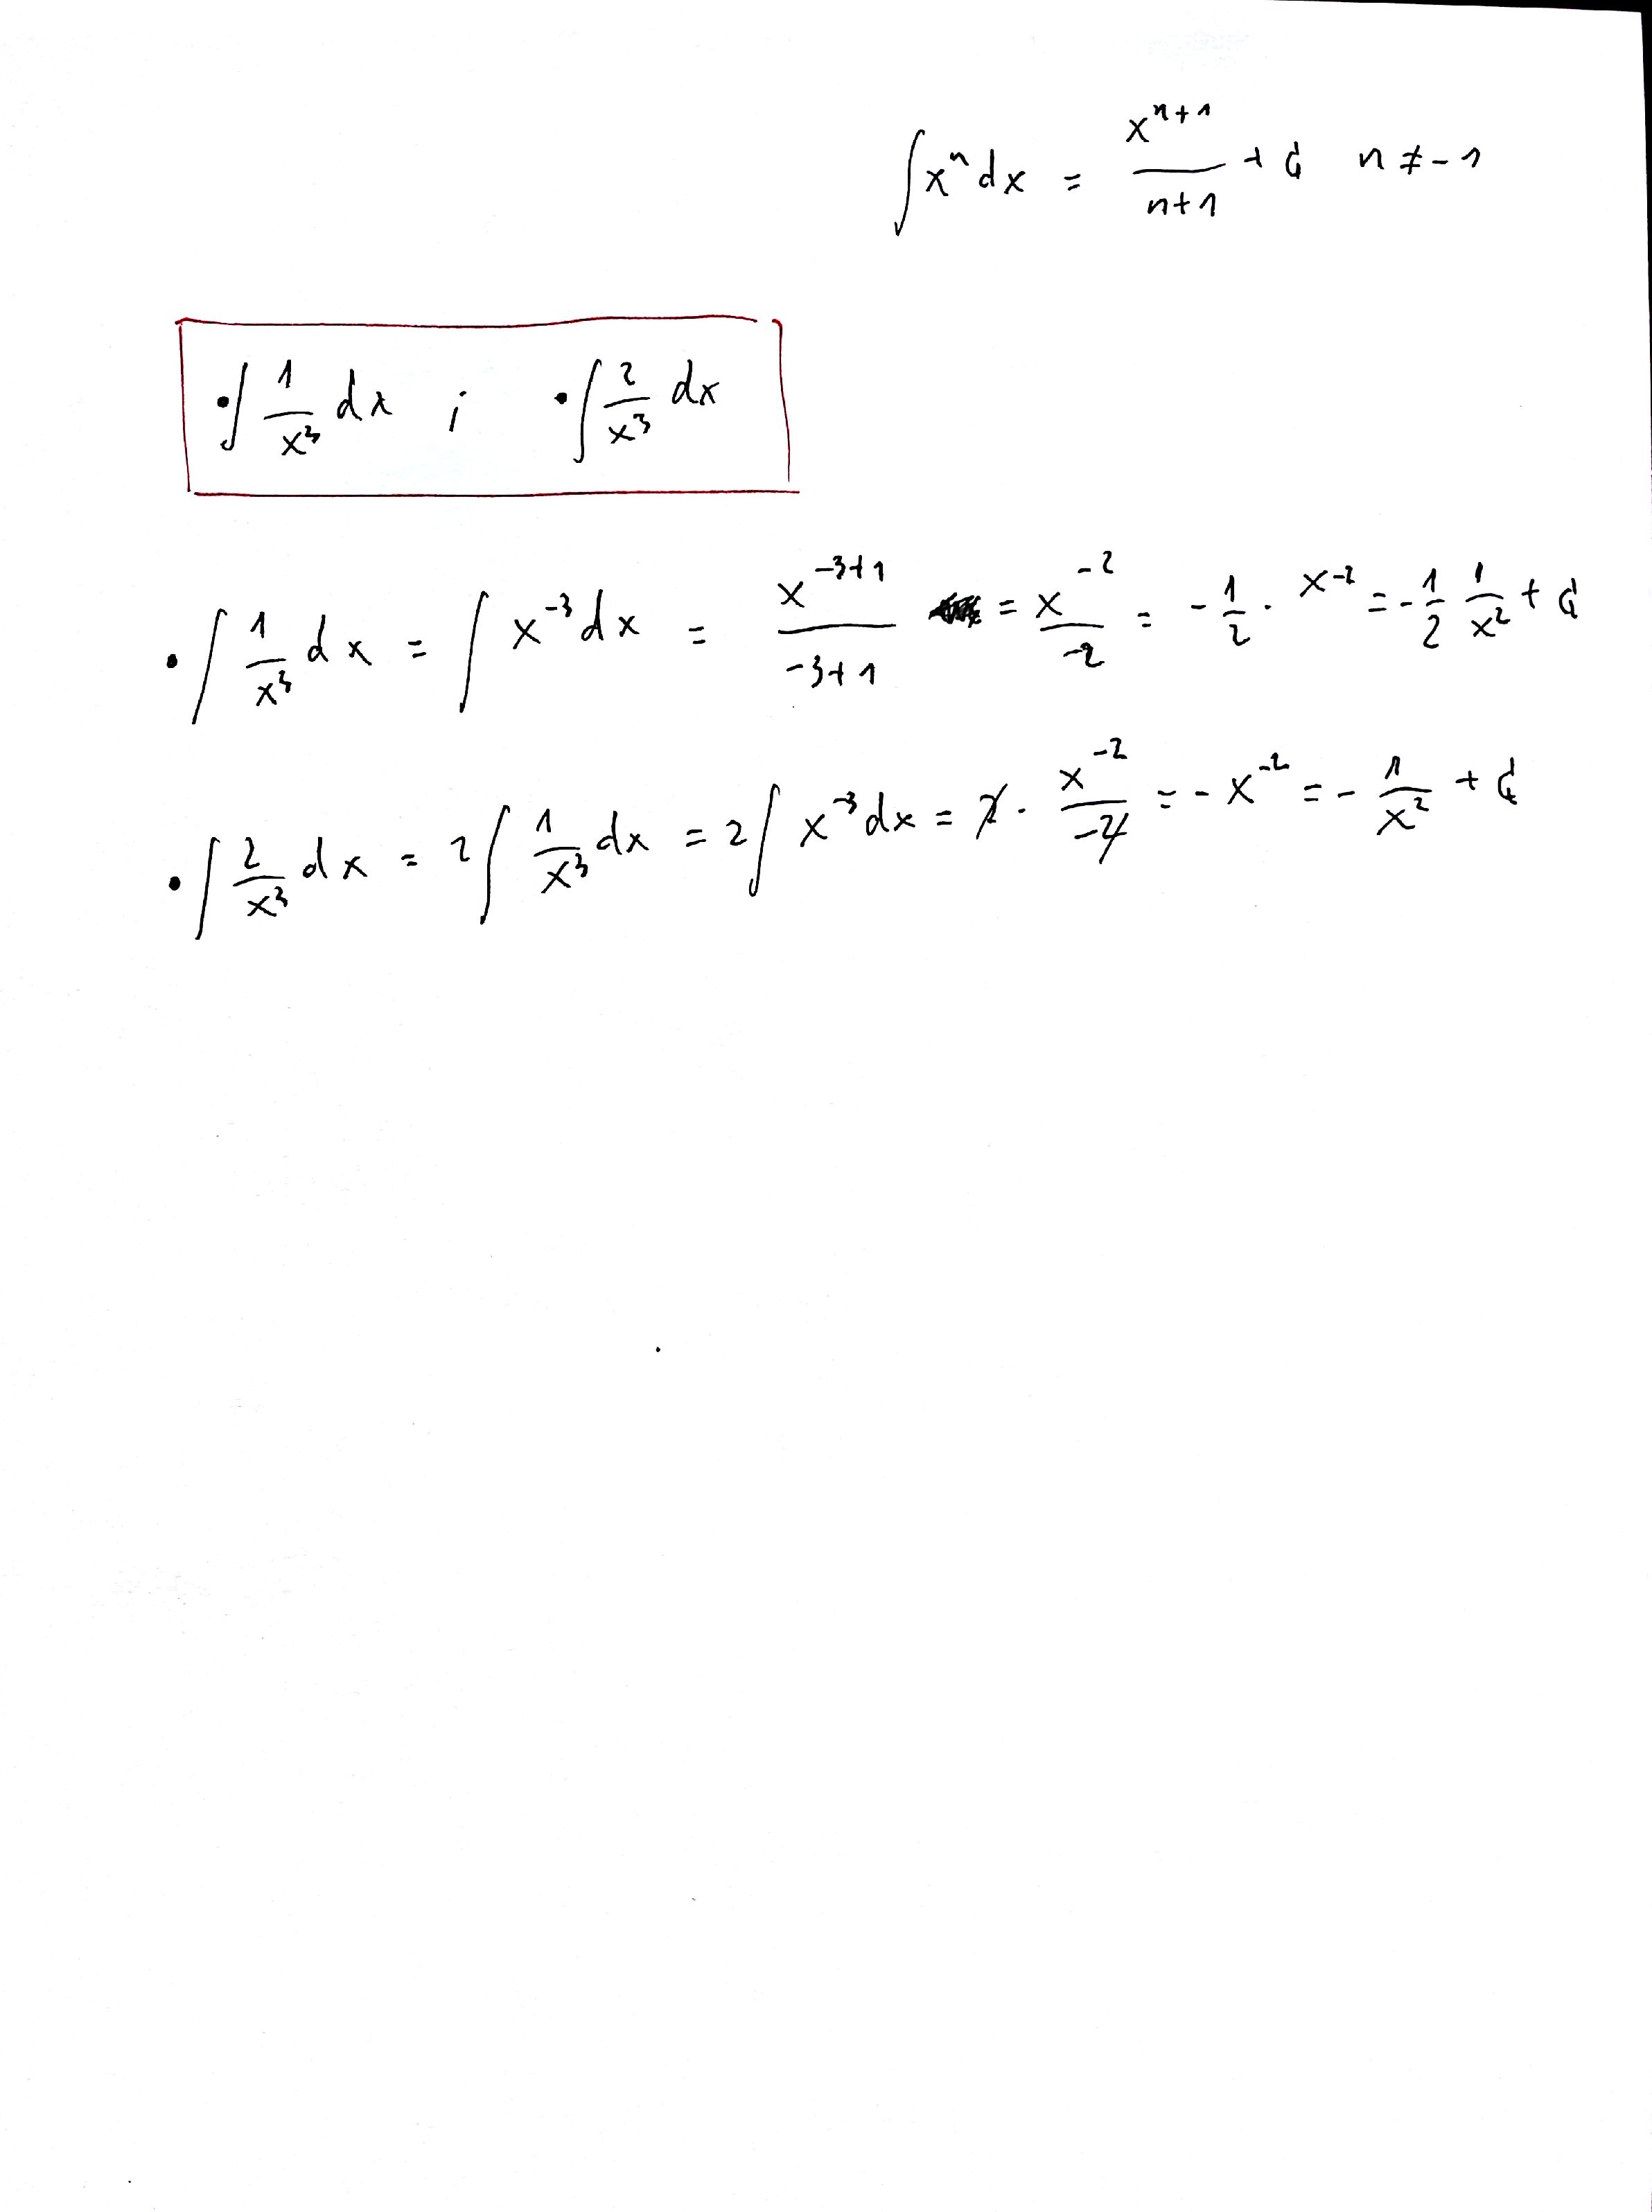 ∫ xⁿ dx = xⁿ⁺¹/(n+1) + C n ≠ -1
• ∫ 1/x³ dx ; • ∫ 2/x³ dx
• ∫ 1/x³ dx = ∫ x⁻³ dx = x⁻³⁺¹/(-3+1) = x⁻²/-2 = -1/2 · x⁻² = -1/2 1/x² + C
• ∫ 2/x³ dx = 2 ∫ 1/x³ dx = 2 ∫ x⁻³ dx = 2 · x⁻²/-2 = -x⁻² = -1/x² + C